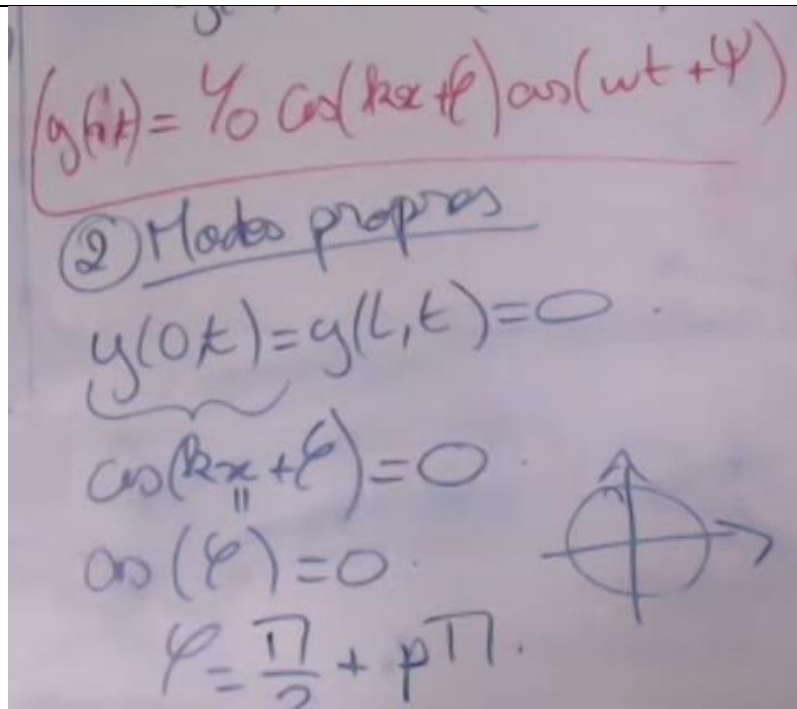 y(x,t) = Y0 cos(kx+φ) cos(ωt+ψ)
② Modes propres
y(0,t) = y(L,t) = 0.
cos(kx+φ) = 0.
"
cos(φ) = 0.
φ = π/2 + pπ.